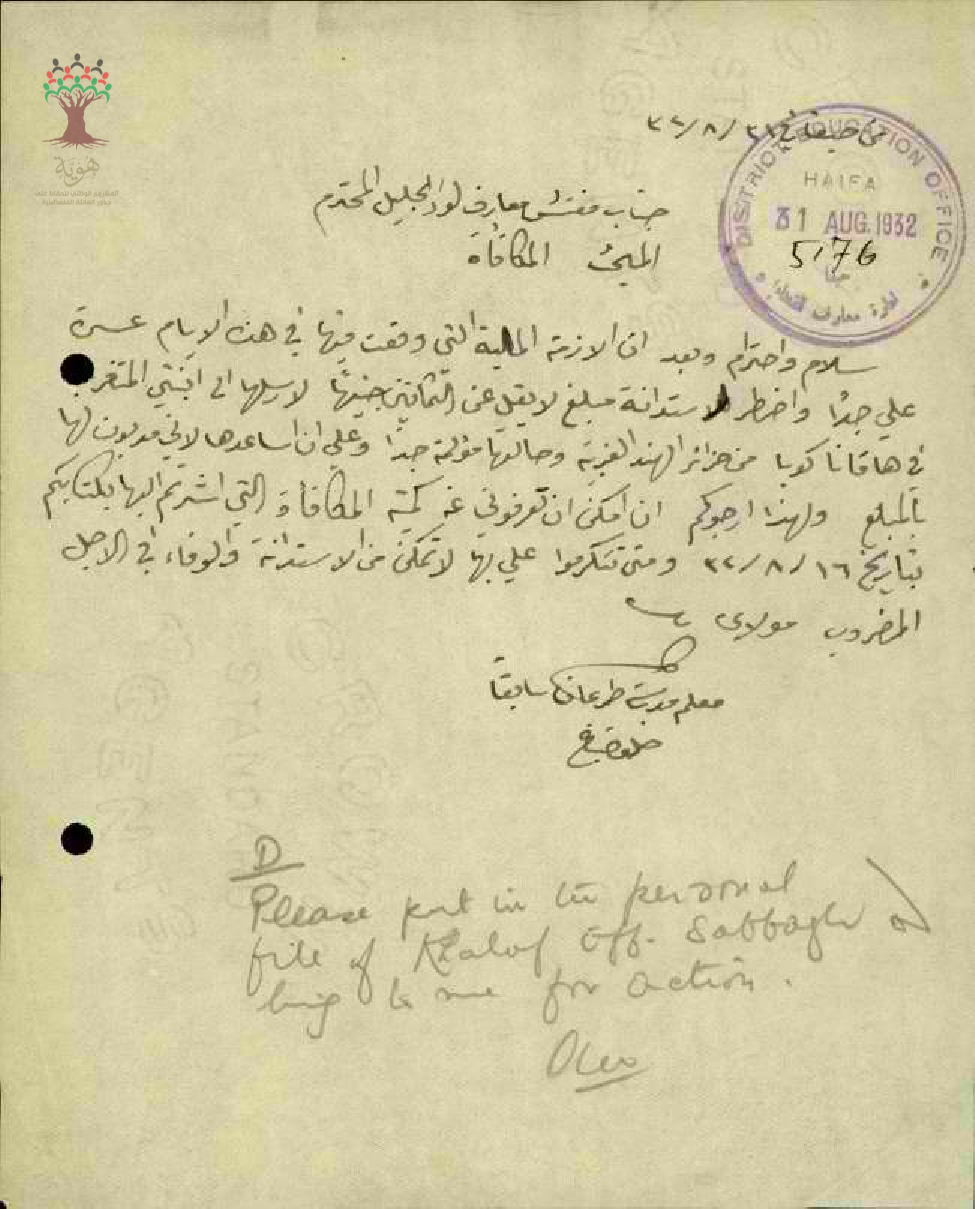 هوية
من حيفا في ٣١/٨/٣٢
DISTRICT EDUCATION OFFICE
HAIFA
31 AUG. 1932
5176
حيفا
ادارة معارف
جناب مفتش معارف لواء الجليل المحترم
المبحث المكافأة
سلام واحترام وبعد ان الازمة المالية التي وقعت فيها في هذه الايام عسرة
علي جدًا واضطر لاستدانة مبلغ لا يقل عن الثمانين جنيهًا لارسلها الى ابنتي
في هافانا كوبا من جزائر الهند الغربية وحالتها مؤلمة جدًا وعلي ان اساعدها لاني مديون لها
بالمبلغ ولهذا ارجوكم ان امكن ان تعرفوني عن كمية المكافأة التي اشرتم اليها بكتابكم
بتاريخ ١٦/٨/٣٢ ومتى تتكرموا علي بها لاتمكن من الاستدانة والوفاء في الاجل
المضروب مولاي
معلم مدرسة طرعان سابقًا
خلف صباغ
D
Please put in the personal
file of Khalaf Eff. Sabbagh &
bring to me for action.